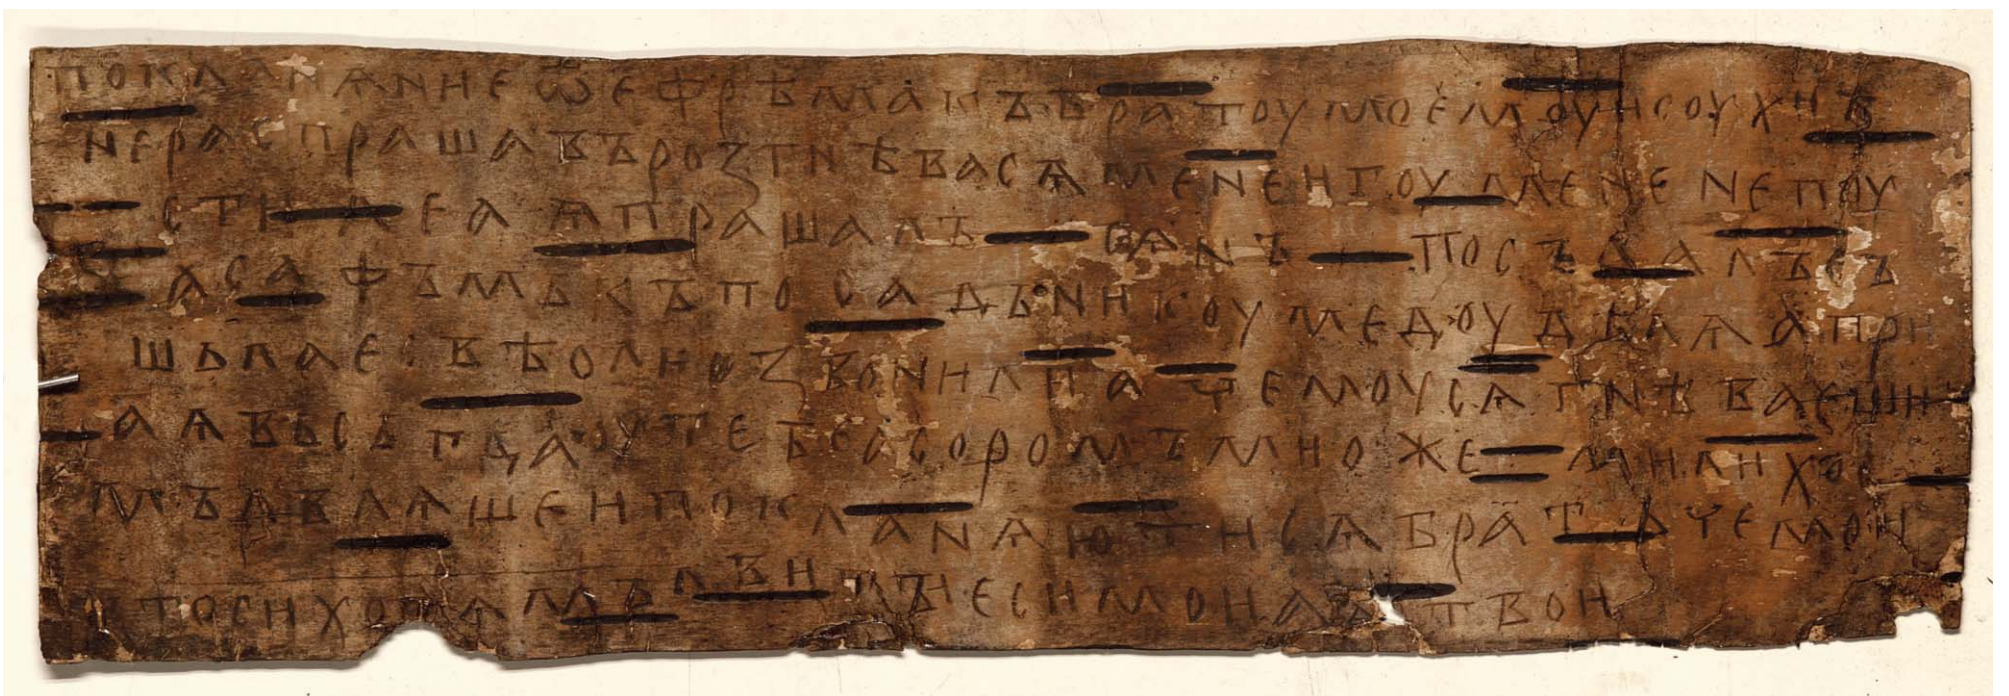 покланѧниеѿефрѣмакъбратоумоемоуисоухиѣ
нераспрашавърозгнѣвасѧменеигоуменене­поу
стилеаѧпрашалъсѧнъпосълалъсъ
асафъмькъпосадьникоумедоудѣлѧапри
шьлаесвѣолиозвонилиачемоусѧгнѣваеши
аѧвьсьгдаоутебеасоромъмиожемилихо
мълвлѧшеипокланѧютисѧбратьчемои
тосихотѧмълвитыесимоиаѧтвои